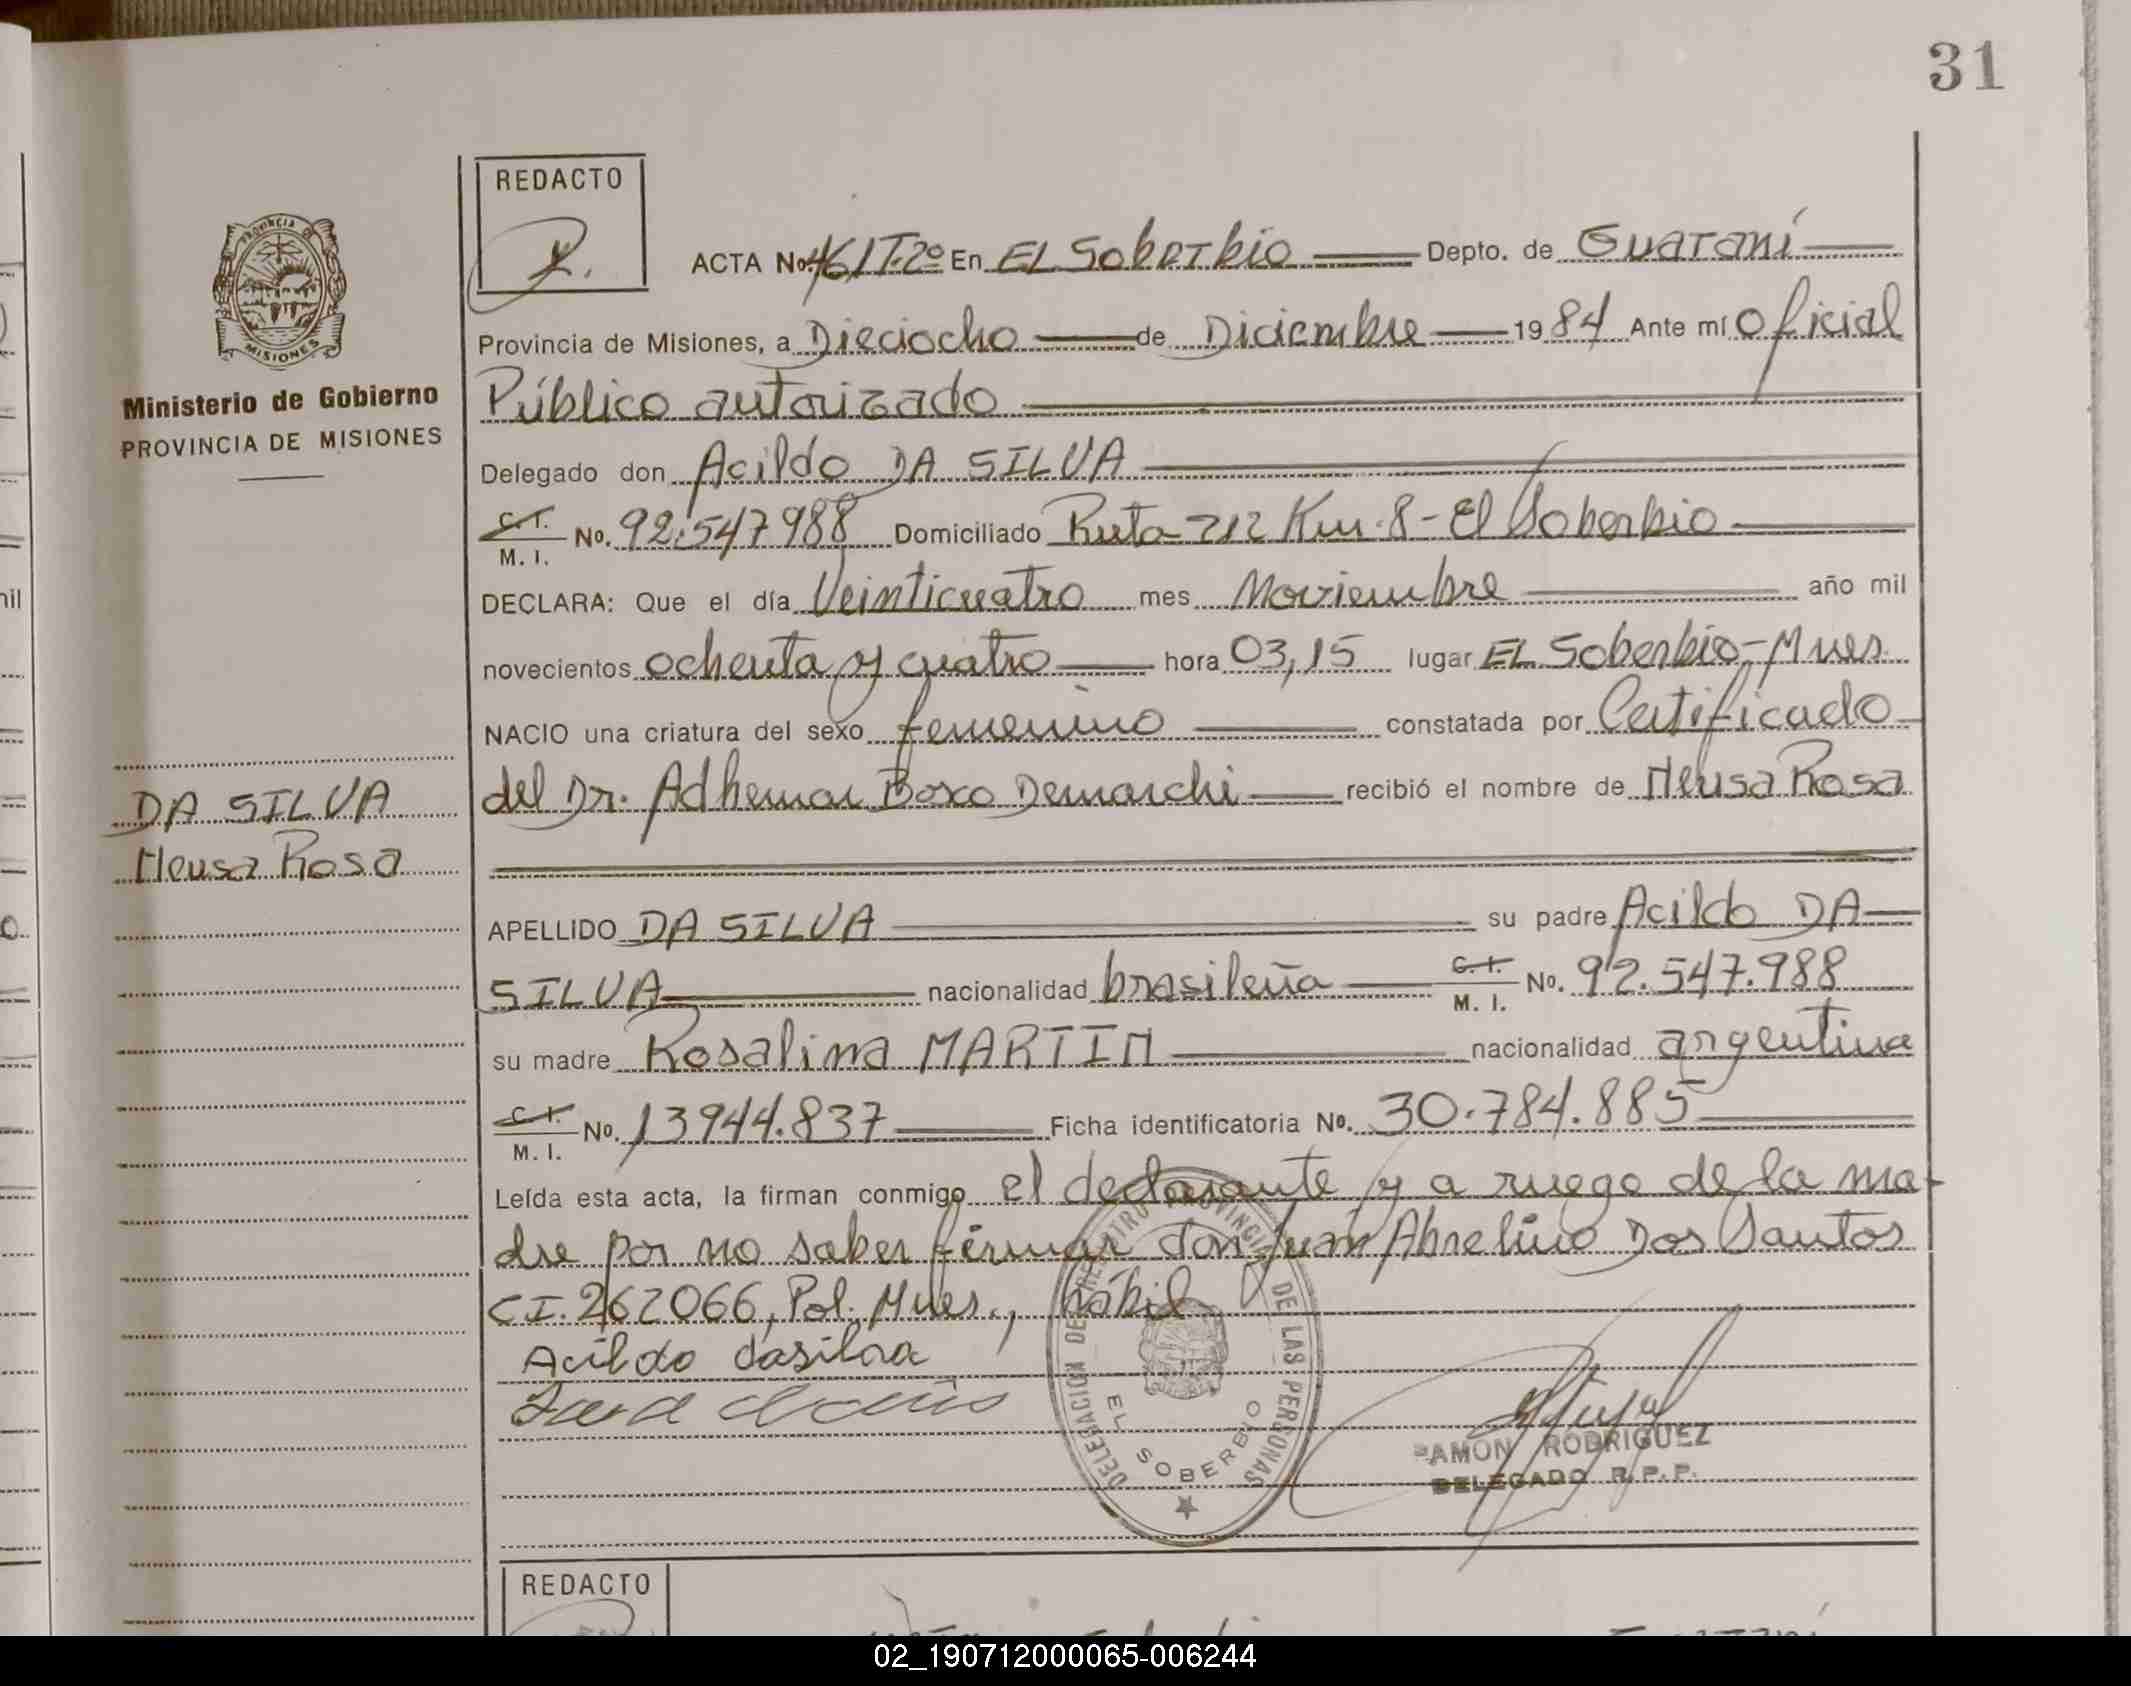 31
REDACTO
PROVINCIA DE
MISIONES
Ministerio de Gobierno
PROVINCIA DE MISIONES
DA SILVA
Neusa Rosa
ACTA No. 461T.2º En EL Soberbio Depto. de Guaraní
Provincia de Misiones, a Dieciocho de Diciembre 1984 Ante mí Oficial
Público autorizado
Delegado don Acildo DA SILVA
C. I. M. I. No. 92.547988 Domiciliado Ruta 212 Km. 8 - El Soberbio
DECLARA: Que el día Veinticuatro mes Noviembre año mil
novecientos ochenta y cuatro hora 03,15 lugar EL Soberbio - Mnes.
NACIO una criatura del sexo femenino constatada por Certificado
del Dr. Adhemar Boxo Demarchi recibió el nombre de Neusa Rosa
APELLIDO DA SILVA su padre Acildo DA
SILVA nacionalidad brasileña C. I. M. I. No. 92.547.988
su madre Rosalina MARTIN nacionalidad argentina
C. I. M. I. No. 13944.837 Ficha identificatoria No. 30.784.885
Leída esta acta, la firman conmigo el declarante y a ruego de la ma-
dre por no saber firmar don Juan Abnelino Dos Santos
CI. 262066, Pol. Mnes., hábil
Acildo dasilva
DELEGACION DE REGISTRO PROVINCIAL DE LAS PERSONAS
EL SOBERBIO
RAMON RODRIGUEZ
DELEGADO R.P.P.
REDACTO
02_190712000065-006244